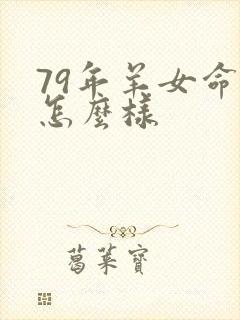 79年羊女命
怎麼樣
葛菓寶